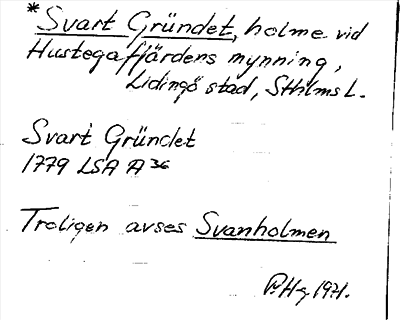 *Svart Gründet, holme vid
Hustegaffjärdens mynning,
Lidingö stad, Sthlms L.
Svart Gründet
1779 LSA A 36
Troligen avses Svanholmen
P.Hg 1971.